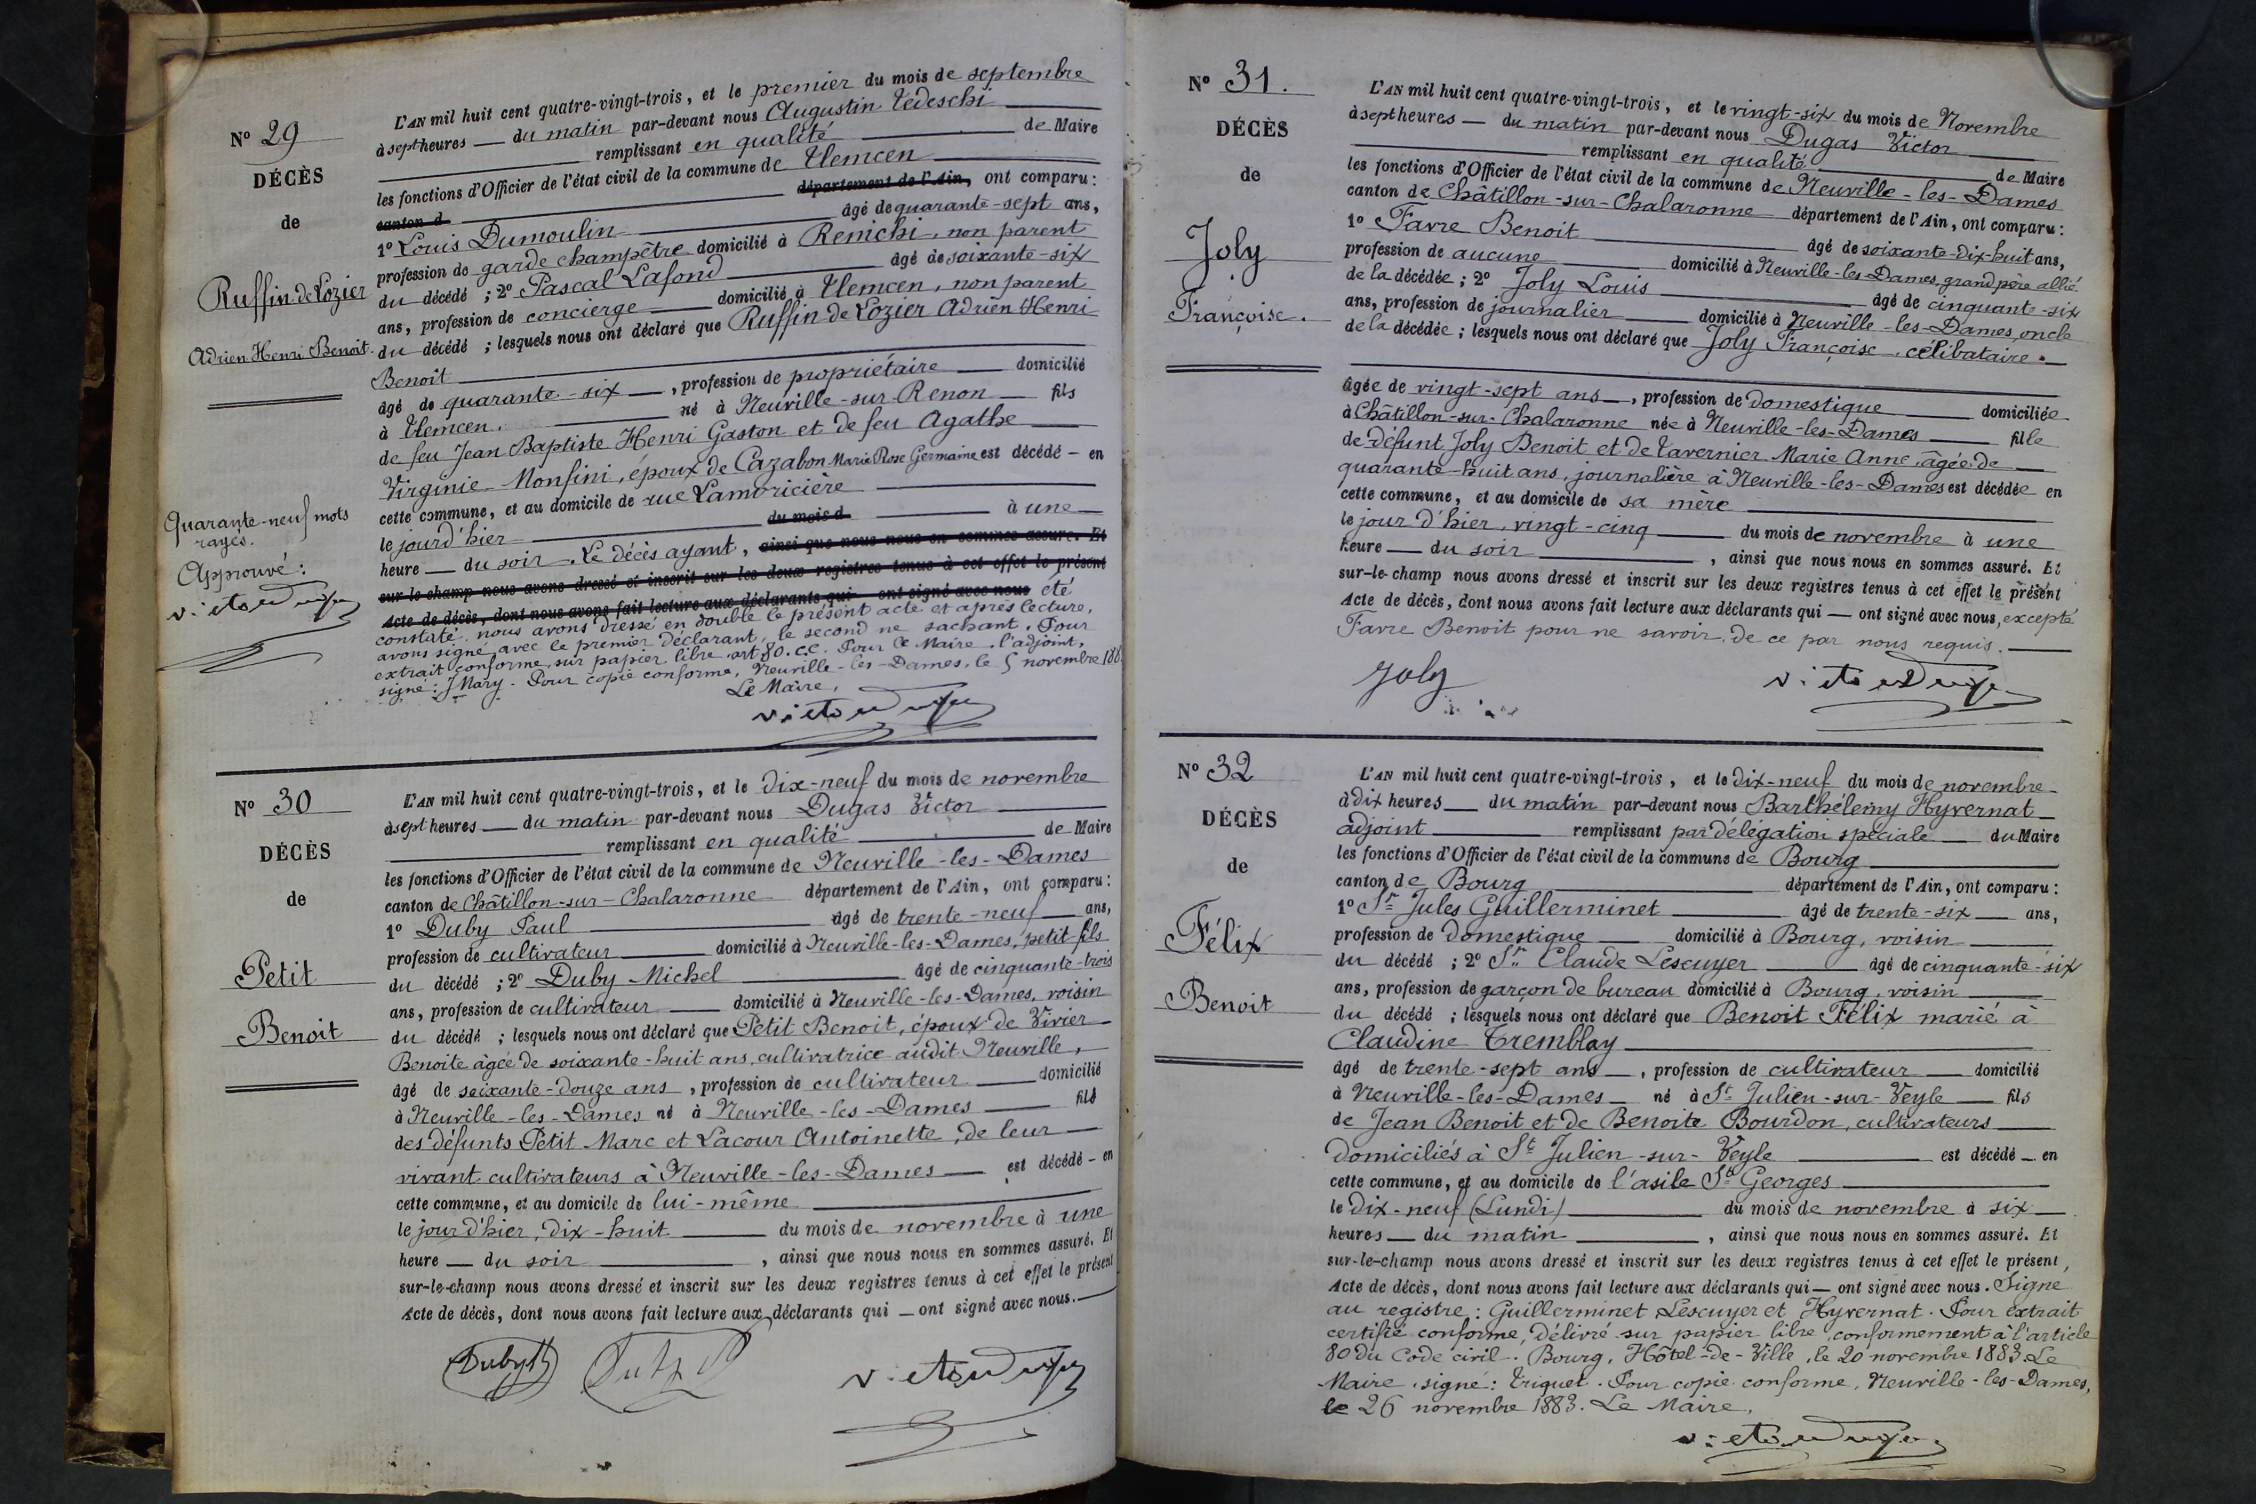 N° 29
DÉCÈS
de
Ruffin de Lozier
Adrien Henri Benoit.
Quarante-neuf mots
rayés.
Approuvé :
L'AN mil huit cent quatre-vingt-trois, et le premier du mois de septembre
à sept heures — du matin par-devant nous Augustin Tedeschi
remplissant en qualité de Maire
les fonctions d'Officier de l'état civil de la commune de Tlemcen
canton d département de l'Ain, ont comparu :
1° Louis Dumoulin âgé de quarante-sept ans,
profession de garde champêtre domicilié à Remchi, non parent
du décédé ; 2° Pascal Lafond âgé de soixante-six
ans, profession de concierge domicilié à Tlemcen, non parent
du décédé ; lesquels nous ont déclaré que Ruffin de Lozier Adrien Henri
Benoit
âgé de quarante-six —, profession de propriétaire domicilié
à Tlemcen. né à Neuville-sur-Renon fils
de feu Jean Baptiste Henri Gaston et de feu Agathe
Virginie Monfini, époux de Cazabon Marie Rose Germaine est décédé - en
cette commune, et au domicile de rue Lamoricière
le jourd'hier du mois d à une
heure — du soir. Le décès ayant, ainsi que nous nous en sommes assuré. Et
sur-le-champ nous avons dressé et inscrit sur les deux registres tenus à cet effet le présent
Acte de décès, dont nous avons fait lecture aux déclarants qui ont signé avec nous été
constaté, nous avons dressé en double le présent acte et après lecture,
avons signé avec le premier déclarant, le second ne sachant. Pour
extrait conforme, sur papier libre art 80. c.c. Pour le Maire, l'adjoint,
signé : J Mary. Pour copie conforme, Neuville-les-Dames, le 5 novembre 188
Le Maire,
N° 30
DÉCÈS
de
Petit
Benoit
L'AN mil huit cent quatre-vingt-trois, et le dix-neuf du mois de novembre
à sept heures — du matin par-devant nous Dugas Victor
remplissant en qualité de Maire
les fonctions d'Officier de l'état civil de la commune de Neuville-les-Dames
canton de Châtillon-sur-Chalaronne département de l'Ain, ont comparu :
1° Duby Paul âgé de trente-neuf ans,
profession de cultivateur domicilié à Neuville-les-Dames, petit-fils
du décédé ; 2° Duby Michel âgé de cinquante-trois
ans, profession de cultivateur domicilié à Neuville-les-Dames, voisin
du décédé ; lesquels nous ont déclaré que Petit Benoit, époux de Vivier
Benoite âgée de soixante-huit ans, cultivatrice audit Neuville,
âgé de soixante-douze ans, profession de cultivateur domicilié
à Neuville-les-Dames né à Neuville-les-Dames fils
des défunts Petit Marc et Lacour Antoinette, de leur
vivant cultivateurs à Neuville-les-Dames est décédé - en
cette commune, et au domicile de lui-même
le jour d'hier, dix-huit du mois de novembre à une
heure — du soir, ainsi que nous nous en sommes assuré. Et
sur-le-champ nous avons dressé et inscrit sur les deux registres tenus à cet effet le présent
Acte de décès, dont nous avons fait lecture aux déclarants qui — ont signé avec nous.
N° 31.
DÉCÈS
de
Joly
Françoise.
L'AN mil huit cent quatre-vingt-trois, et le vingt-six du mois de Novembre
à sept heures — du matin par-devant nous Dugas Victor
remplissant en qualité de Maire
les fonctions d'Officier de l'état civil de la commune de Neuville-les-Dames
canton de Châtillon-sur-Chalaronne département de l'Ain, ont comparu :
1° Favre Benoit âgé de soixante-dix-huit ans,
profession de aucune domicilié à Neuville-les-Dames, grand père allié
de la décédée ; 2° Joly Louis âgé de cinquante-six
ans, profession de journalier domicilié à Neuville-les-Dames, oncle
de la décédée ; lesquels nous ont déclaré que Joly Françoise, célibataire.
âgée de vingt-sept ans —, profession de domestique domiciliée
à Châtillon-sur-Chalaronne née à Neuville-les-Dames fille
de défunt Joly Benoit et de Tavernier Marie Anne, âgée de
quarante-huit ans, journalière à Neuville-les-Dames est décédée en
cette commune, et au domicile de sa mère
le jour d'hier, vingt-cinq du mois de novembre à une
heure — du soir, ainsi que nous nous en sommes assuré. Et
sur-le-champ nous avons dressé et inscrit sur les deux registres tenus à cet effet le présent
Acte de décès, dont nous avons fait lecture aux déclarants qui — ont signé avec nous, excepté
Favre Benoit pour ne savoir, de ce par nous requis.
Joly
N° 32
DÉCÈS
de
Félix
Benoit
L'AN mil huit cent quatre-vingt-trois, et le dix-neuf du mois de novembre
à dix heures — du matin par-devant nous Barthélemy Hyvernat
adjoint remplissant par délégation spéciale du Maire
les fonctions d'Officier de l'état civil de la commune de Bourg
canton de Bourg département de l'Ain, ont comparu :
1° Sr Jules Guillerminet âgé de trente-six ans,
profession de domestique domicilié à Bourg, voisin
du décédé ; 2° Sr Claude Lescuyer âgé de cinquante-six
ans, profession de garçon de bureau domicilié à Bourg, voisin
du décédé ; lesquels nous ont déclaré que Benoit Félix marié à
Claudine Tremblay
âgé de trente-sept ans —, profession de cultivateur domicilié
à Neuville-les-Dames né à St Julien-sur-Veyle fils
de Jean Benoit et de Benoite Bourdon, cultivateurs
domiciliés à St Julien-sur-Veyle est décédé - en
cette commune, et au domicile de l'asile St Georges
le dix-neuf (Lundi) du mois de novembre à six
heures — du matin, ainsi que nous nous en sommes assuré. Et
sur-le-champ nous avons dressé et inscrit sur les deux registres tenus à cet effet le présent,
Acte de décès, dont nous avons fait lecture aux déclarants qui — ont signé avec nous. Signé
au registre : Guillerminet Lescuyer et Hyvernat. Pour extrait
certifié conforme, délivré sur papier libre, conformement à l'article
80 du Code civil. Bourg, Hôtel-de-Ville, le 20 novembre 1883. Le
Maire, signé : Triquet. Pour copie conforme, Neuville-les-Dames,
le 26 novembre 1883. Le Maire,